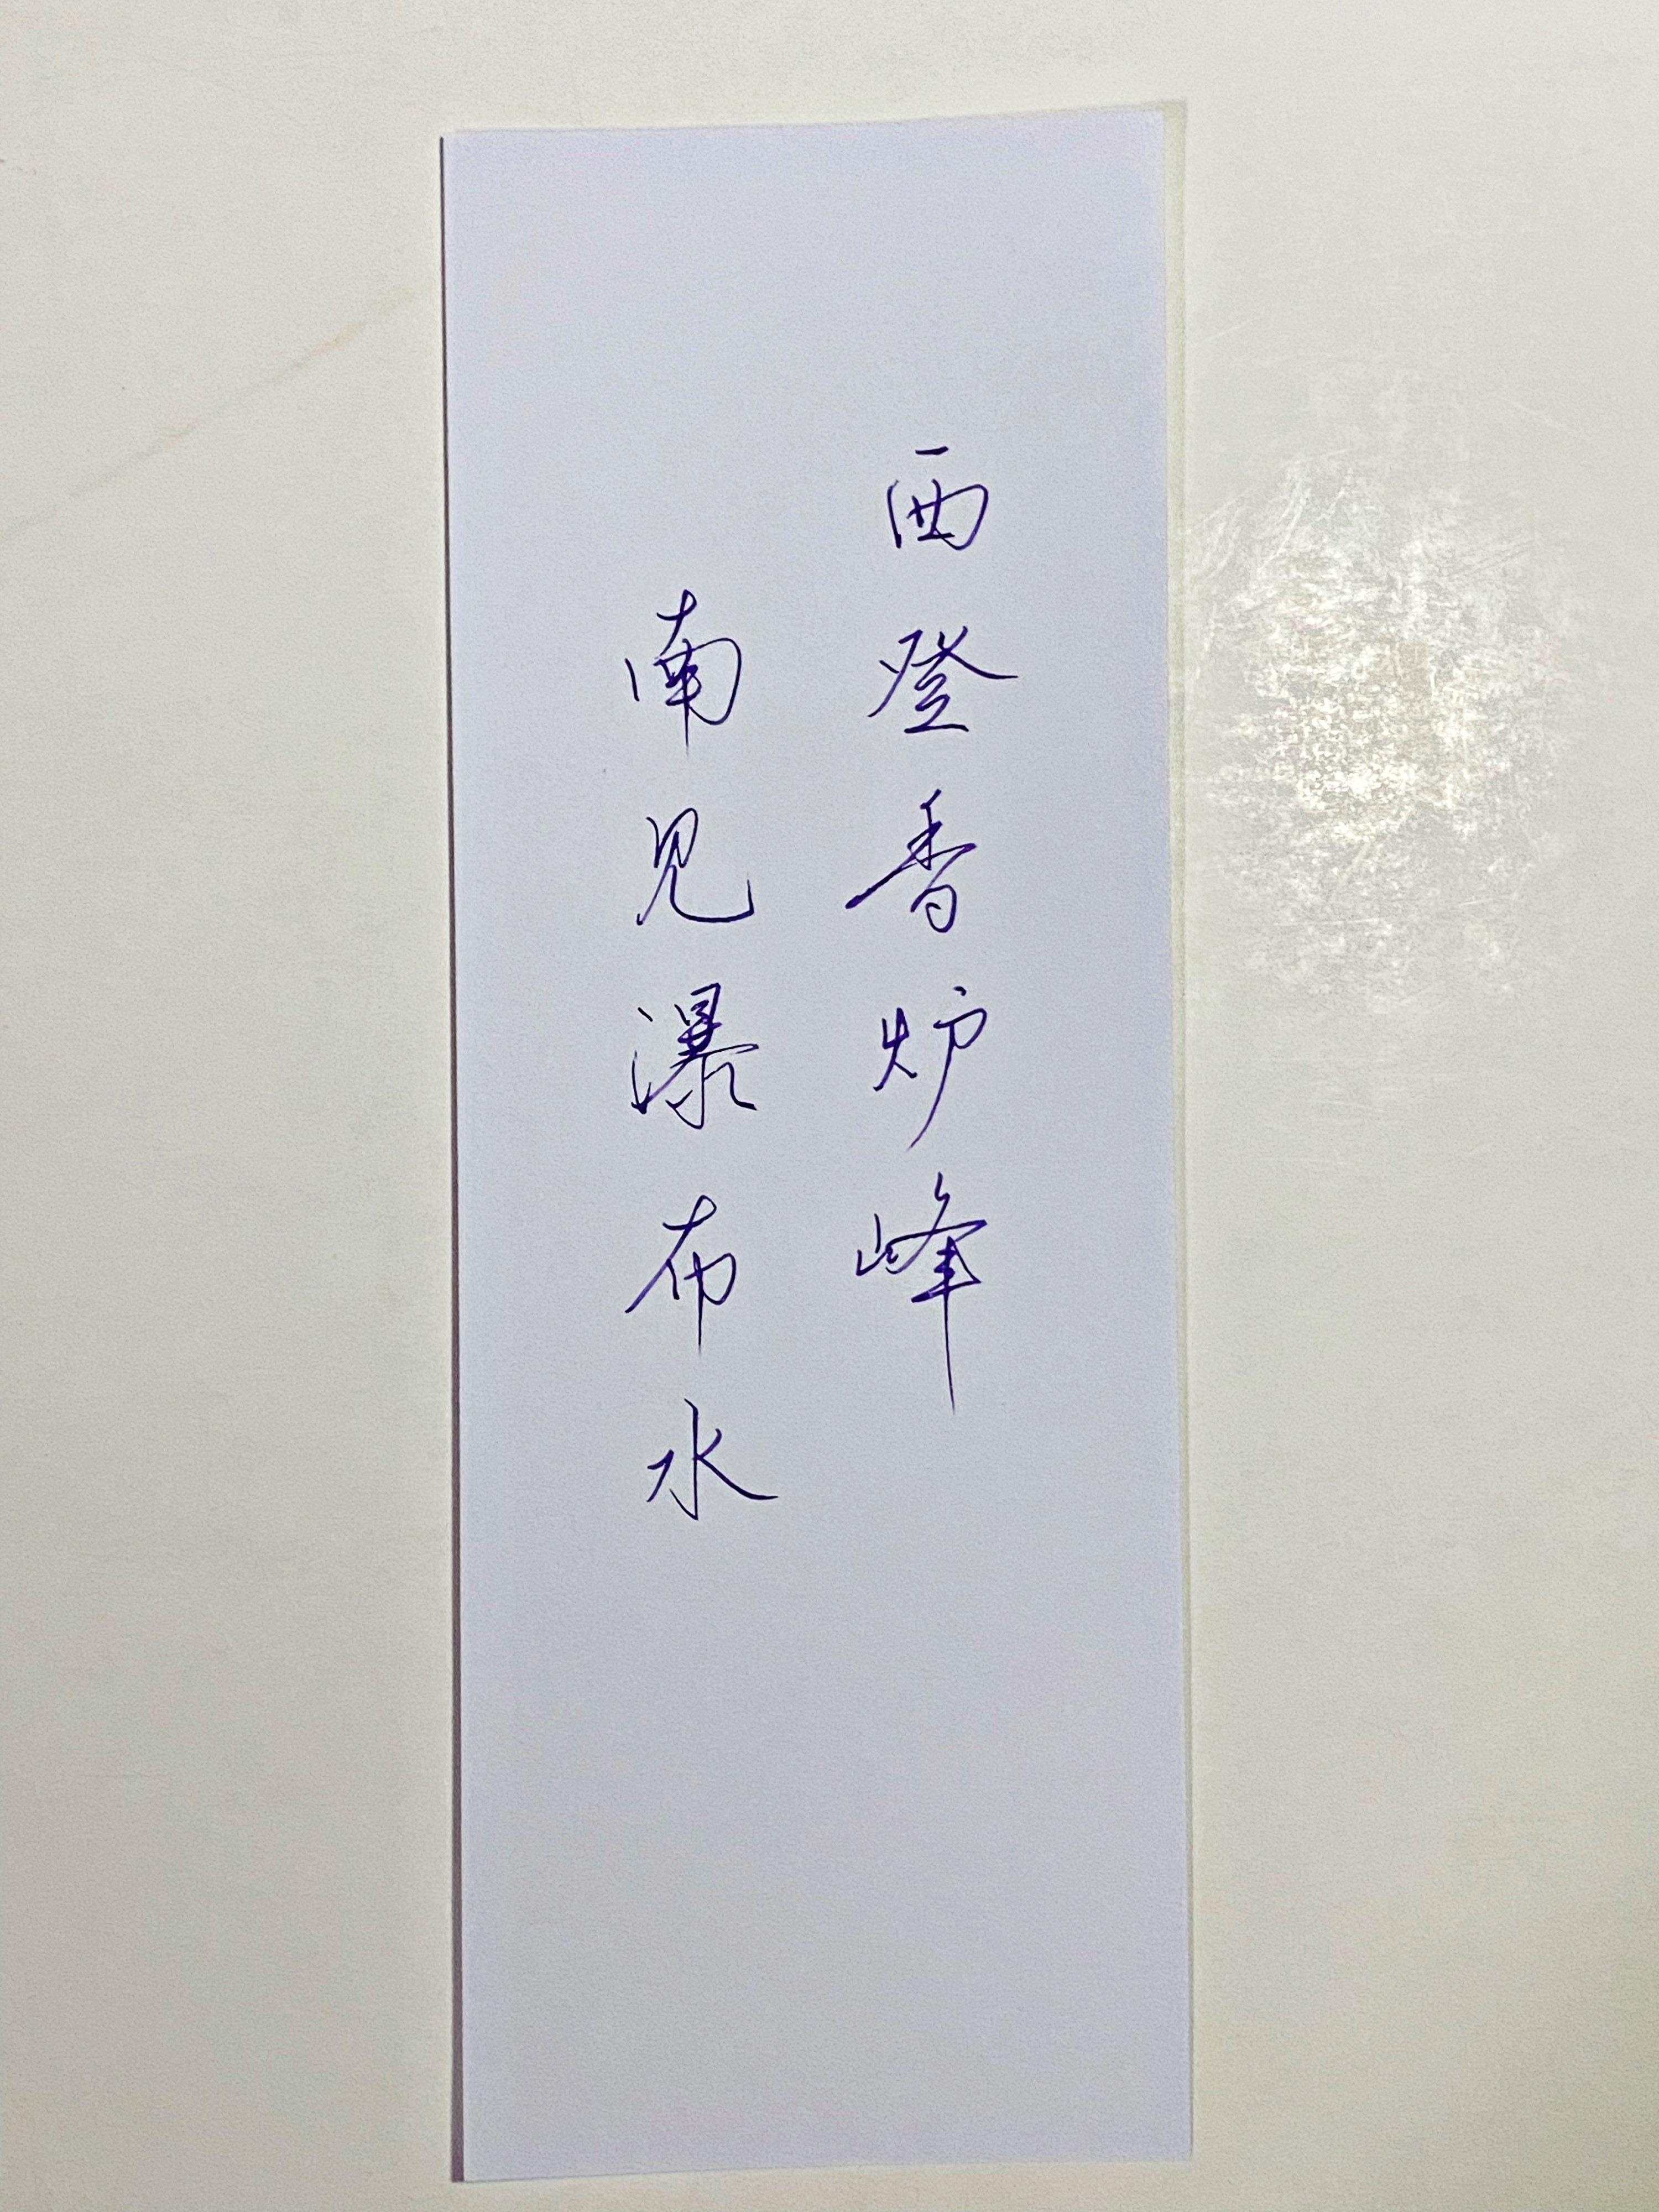 西登香炉峰
南见瀑布水